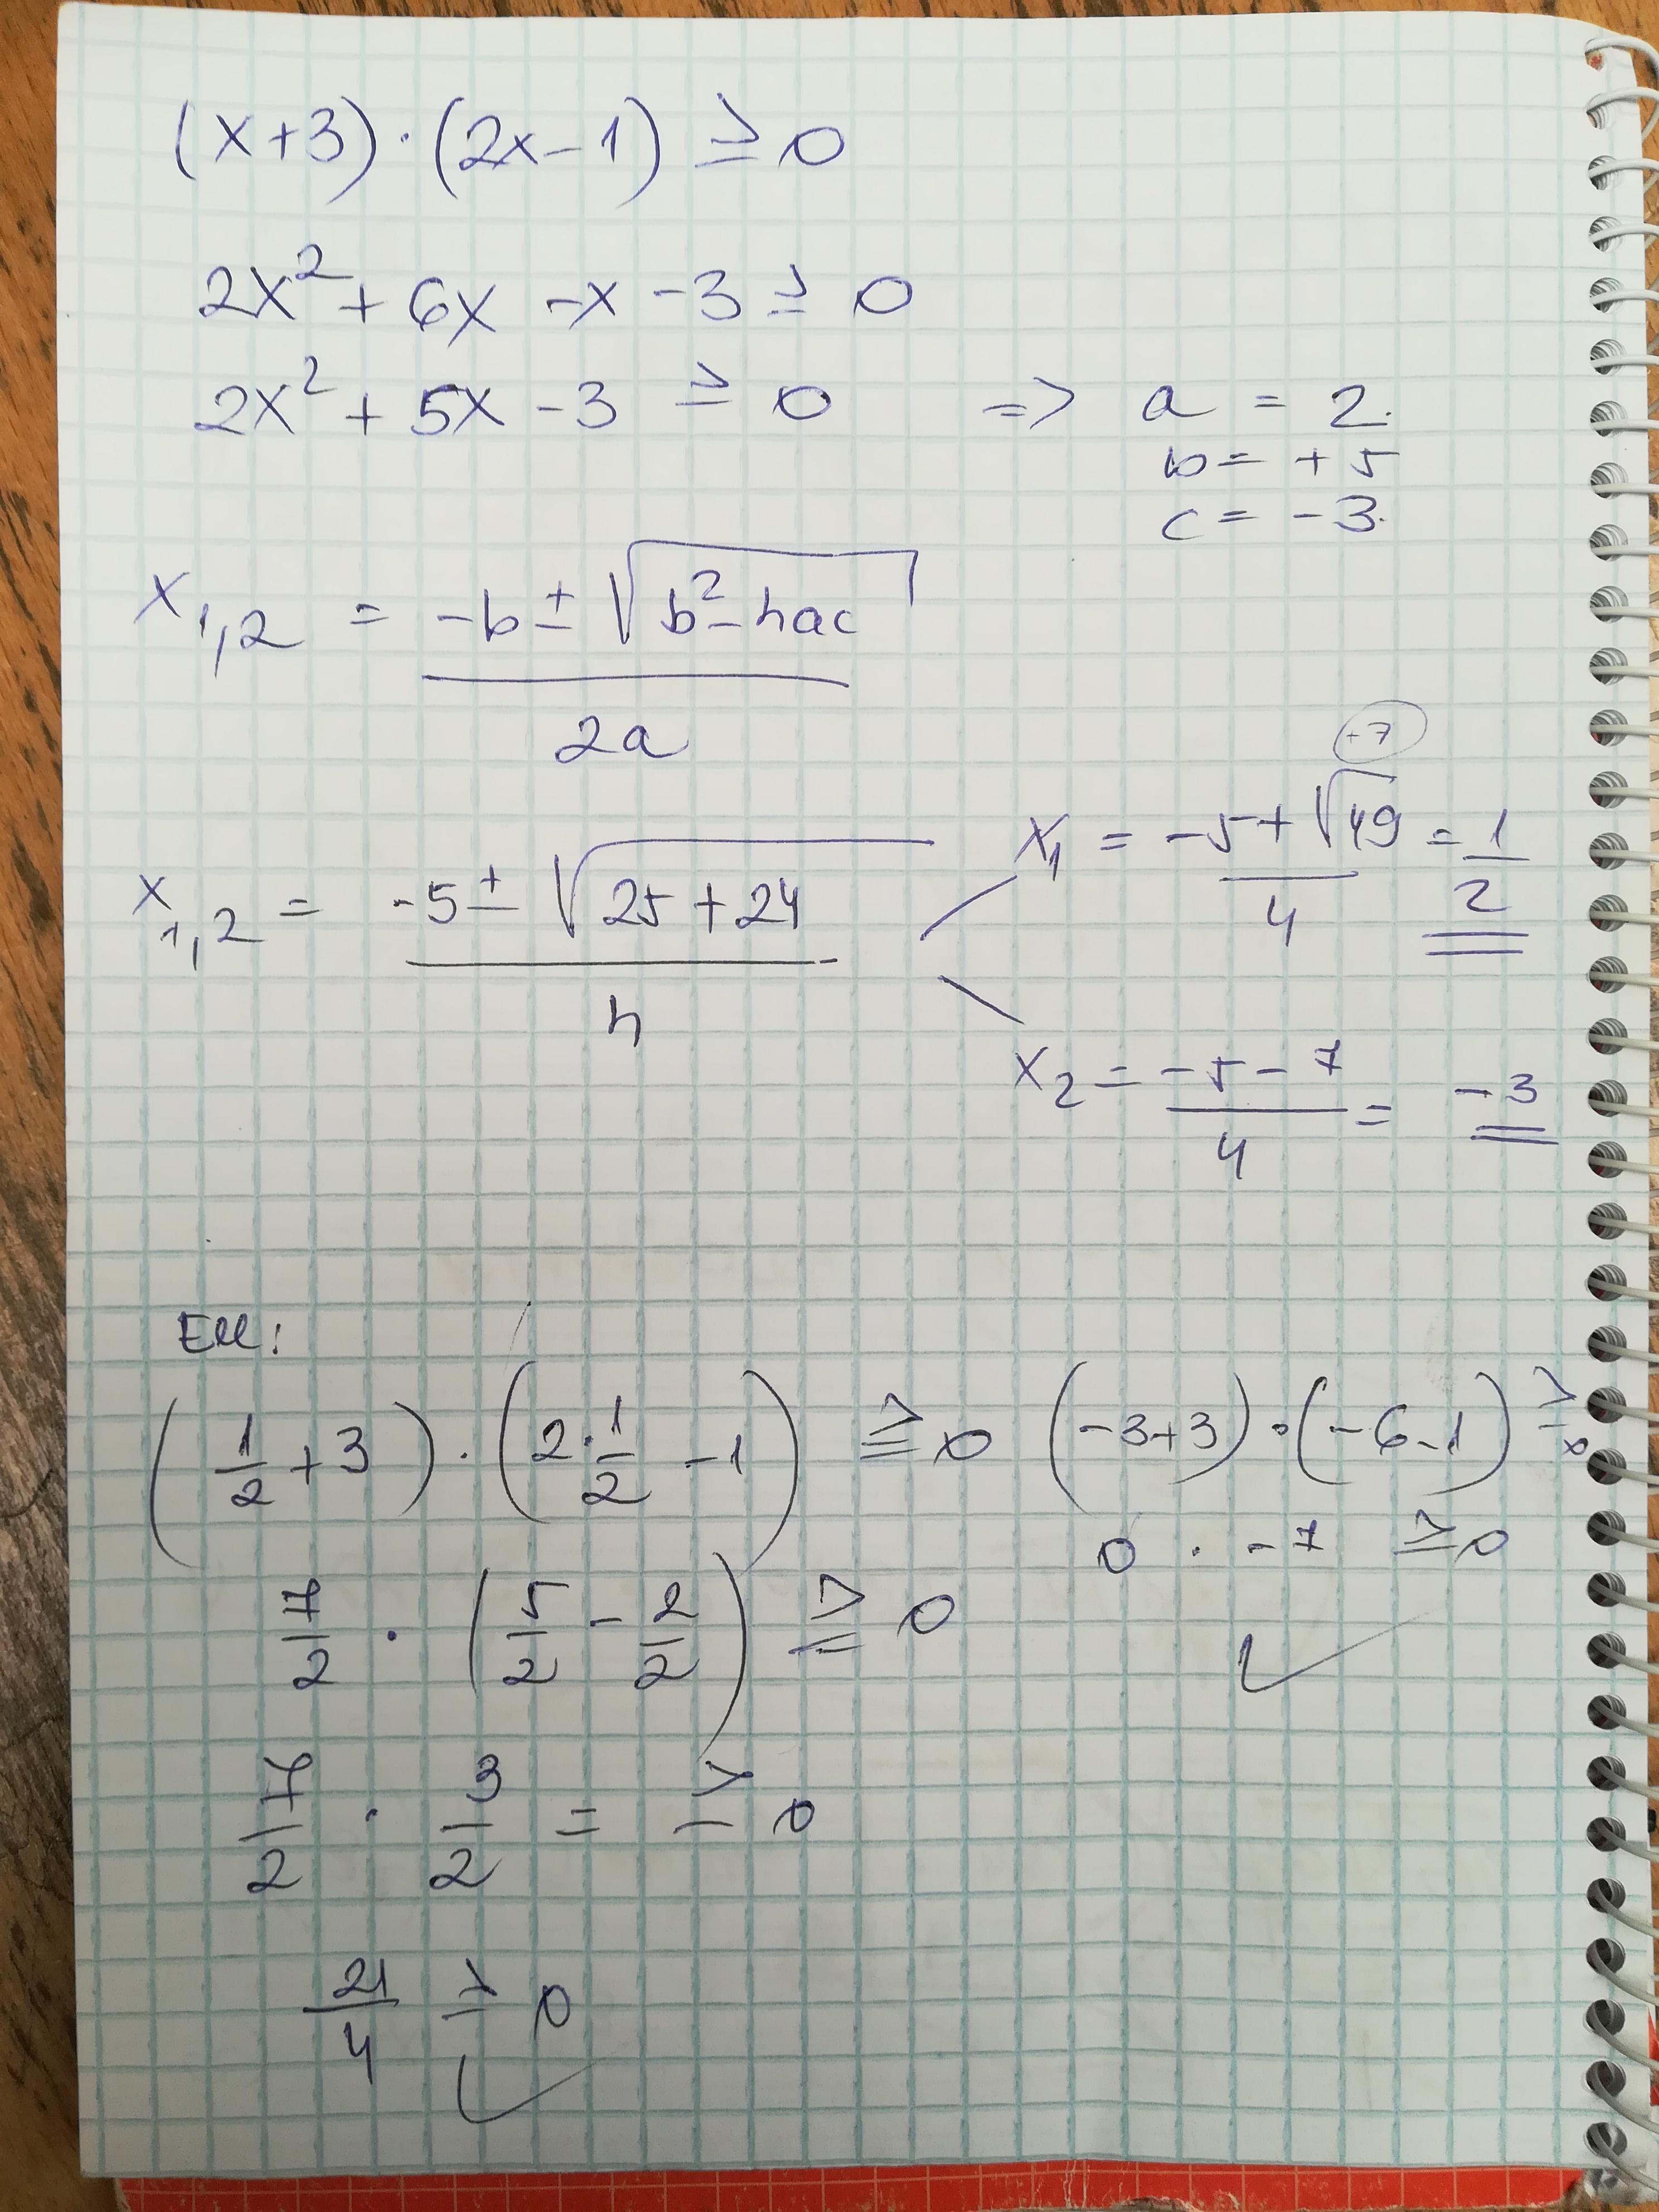 (x+3)·(2x-1) ≥ 0
2x² + 6x - x - 3 ≥ 0
2x² + 5x - 3 ≥ 0 => a = 2.
b = +5
c = -3.
x₁,₂ = (-b ± √(b² - 4ac)) / 2a
+7
x₁,₂ = (-5 ± √(25 + 24)) / 4
x₁ = (-5 + √49) / 4 = 1/2
x₂ = (-5 - 7) / 4 = -3
Ell:
(1/2 + 3)·(2·1/2 - 1) ≥ 0 (-3+3)·(-6-1) ≥ 0
0 · -7 ≥ 0
7/2 · (5/2 - 2/2) ≥ 0 ✓
7/2 · 3/2 = ≥ 0
21/4 ≥ 0
✓